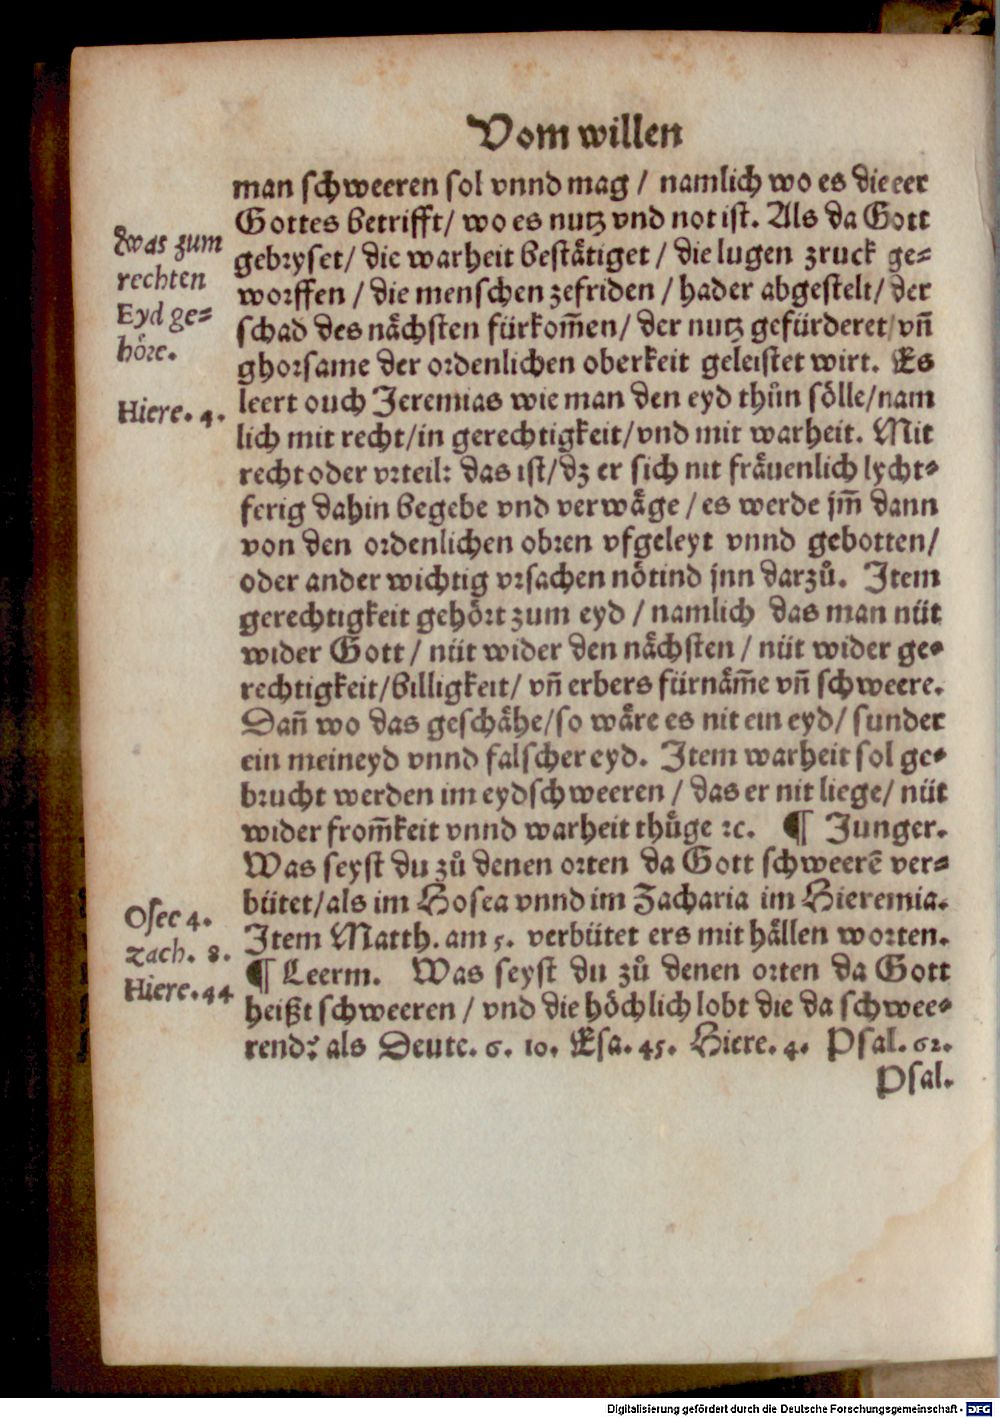 Vom willen
man schweeren sol vnnd mag / namlich wo es die eer
Gottes betrifft/ wo es nutz vnd not ist. Als da Gott
gebryset/ die warheit bestätiget / die lugen zruck ge=
worffen / die menschen zefriden / hader abgestelt/ der
schad des nåchsten fürkom̃en/ der nutz gefürderet/ vn̄
ghorsame der ordenlichen oberkeit geleistet wirt. Es
leert ouch Jeremias wie man den eyd thůn sölle/nam
lich mit recht/in gerechtigkeit/vnd mit warheit. Mit
recht oder vrteil: das ist/dz er sich nit fråuenlich lycht=
ferig dahin begebe vnd verwåge / es werde jm̄ dann
von den ordenlichen obren vfgeleyt vnnd gebotten/
oder ander wichtig vrsachen nötind jnn darzů. Item
gerechtigkeit gehört zum eyd / namlich das man nüt
wider Gott / nüt wider den nåchsten / nüt wider ge=
rechtigkeit/billigkeit/ vn̄ erbers fürnåm̄e vn̄ schweere.
Dan̄ wo das geschåhe/so wåre es nit ein eyd/ sunder
ein meineyd vnnd falscher eyd. Item warheit sol ge=
brucht werden im eydschweeren / das er nit liege/ nüt
wider from̄keit vnnd warheit thůge ꝛc. ¶ Junger.
Was seyst du zů denen orten da Gott schweerē ver=
bütet/als im Hosea vnnd im Zacharia im Hieremia.
Item Matth. am 5. verbütet ers mit hållen worten.
¶ Leerm. Was seyst du zů denen orten da Gott
heißt schweeren / vnd die höchlich lobt die da schwee=
rend? als Deute. 6. 10. Esa. 45. Hiere. 4. Psal. 62.
Psal.
Was zum
rechten
Eyd ge=
höre.
Hiere. 4.
Osee 4.
Zach. 8.
Hiere. 44
Digitalisierung gefördert durch die Deutsche Forschungsgemeinschaft - DFG